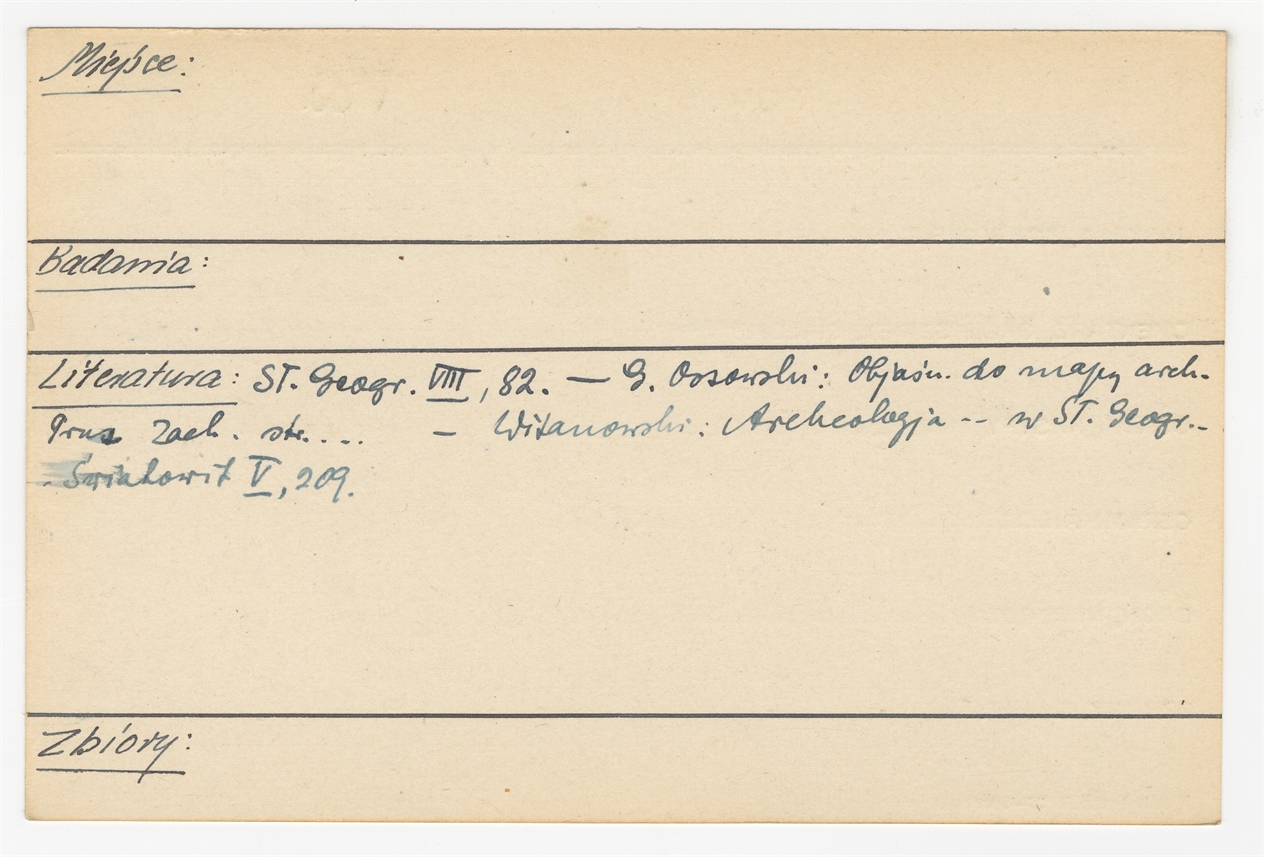 Miejsce:
Badania:
Literatura: Sł. Geogr. VIII, 82. — G. Ossowski: Objaśn. do mapy arch.
Prus Zach. str. ... — Witanowski: Archeologja -- w Sł. Geogr. -
Światowit V, 209.
Zbiory: